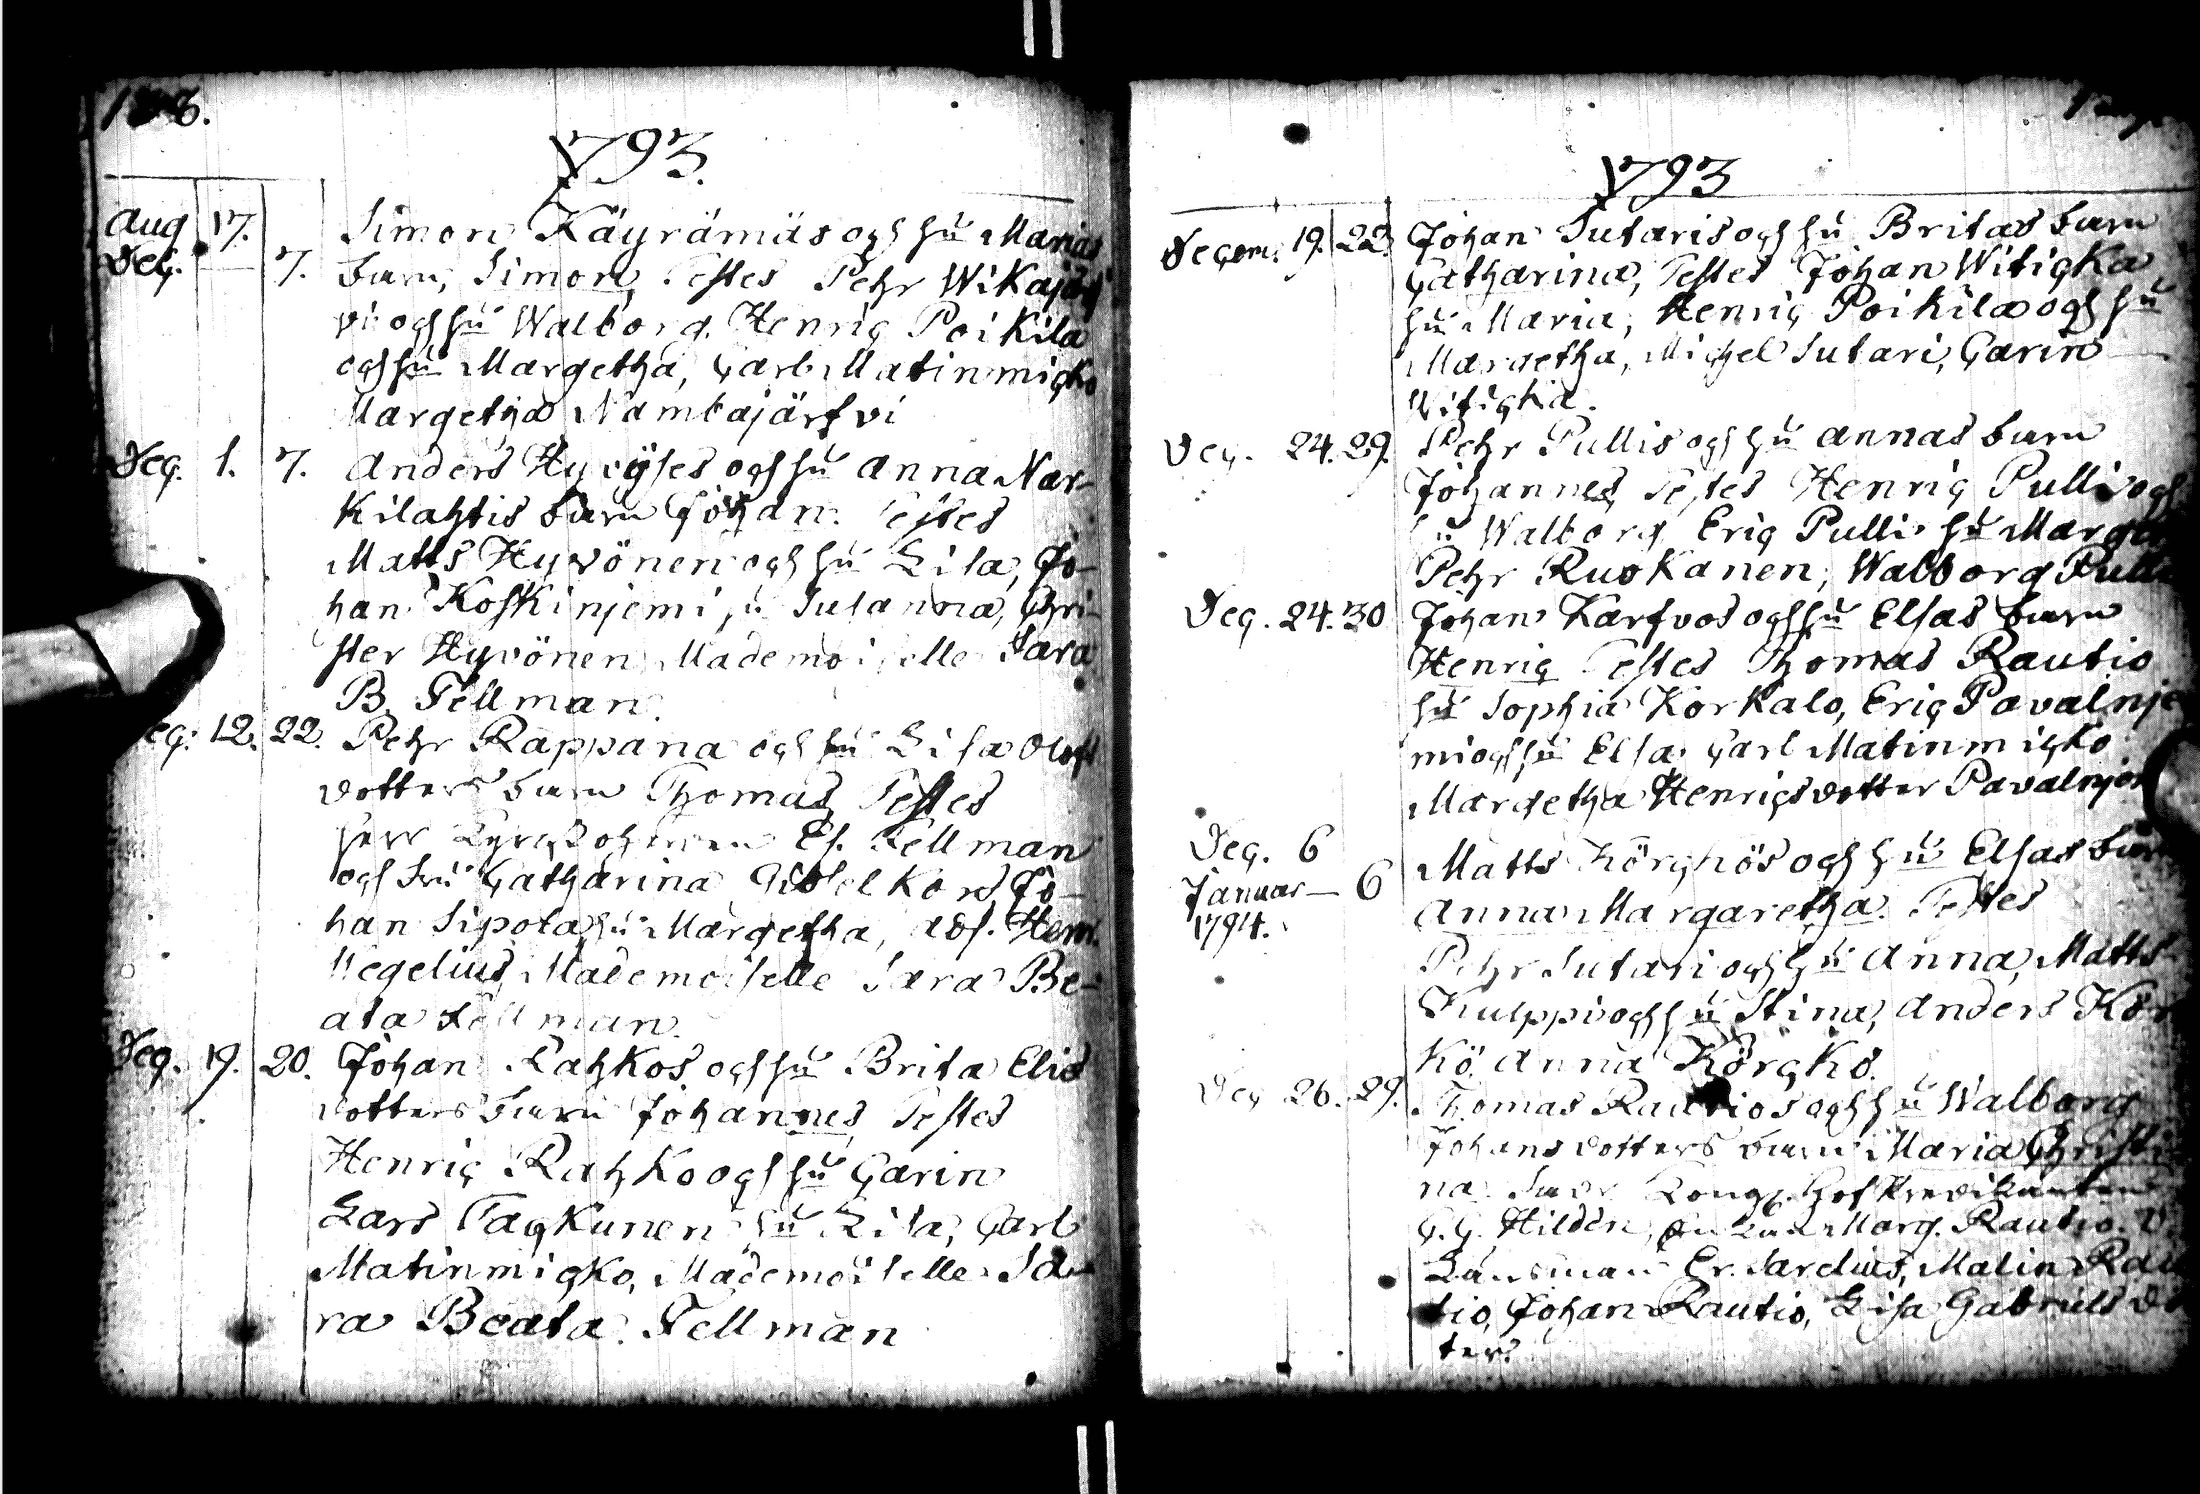 1793.
Aug 17. Simon Käyrämäs och hu Marias
Dec. 7. barn, Simon, Testes Pehr Wikajär
vi och hu Walborg. Henric Poikila
och hu Margetha, Carl Matinmicko
Margetha Nambajärfvi
Dec. 1. 7. Anders Hyvöses och hu Anna Nar-
kilahtis barn Johan. Testes
Matts Hyvönen och hu Lisa, Jo-
han Koskinjemi, hu Susanna, Chri-
ster Hyvönen Mademoiselle Sara
B. Fellman.
Dec. 12. 22. Pehr Rappana och hu Lisa Olofs
dotters barn Thomas, Testes
Herr Kyrckoherren Es. Fellman
och Fru Catharina Kors, Jo-
han Sipola, hu Margetha, Henr.
Wegelius, Mademoiselle Sara Be-
ata Fellman.
Dec. 19. 20. Johan Rahkos och hu Brita Elis
dotters barn Johannes, Testes
Henric Rahko och hu Carin
Lars Tackunen hu Lisa, Carl
Matinmicko, Mademoiselle Sa-
ra Beata. Fellman
1793
Decem. 19. 22. Johan Sutaris och hu Britas barn
Catharina, Testes Johan Witicka,
hu Maria, Henric Poikila och hu
Margetha, Michel Sutari, Carin
Witicka.
Dec. 24. 29. Pehr Pullis och hu Annas barn
Johannes, Testes Henric Pulli och
hu Walborg Eric Pulli hu Marge
Pehr Ruokanen, Walborg Pulli
Dec. 24. 30 Johan Karfvos och hu Elsas barn
Henric Testes Thomas Rautio
hu Sophia Korkalo, Eric Pavalnje
mi och hu Elsa Carl Matinmicko
Margetha Henricsdotter Pavalnjem
Dec. 6 Matts Körckös och hu Elsas barn
Januar— 6 Anna Margaretha. Testes
1794.
Pehr Sutari och hu Anna, Matts
Kulppi och hu Stina, Anders Kör
kö. Anna Körckö.
Dec 26. 29. Thomas Rautios och hu Walborg
Johansdotters barn Maria Christi
na. Hofpredikanten
C. G. Hildén, Marg. Rautio.
Länsman Er. Sarelius, Malin Rau
tio, Johan Rautio, Lisa Gabriels dot
ter.